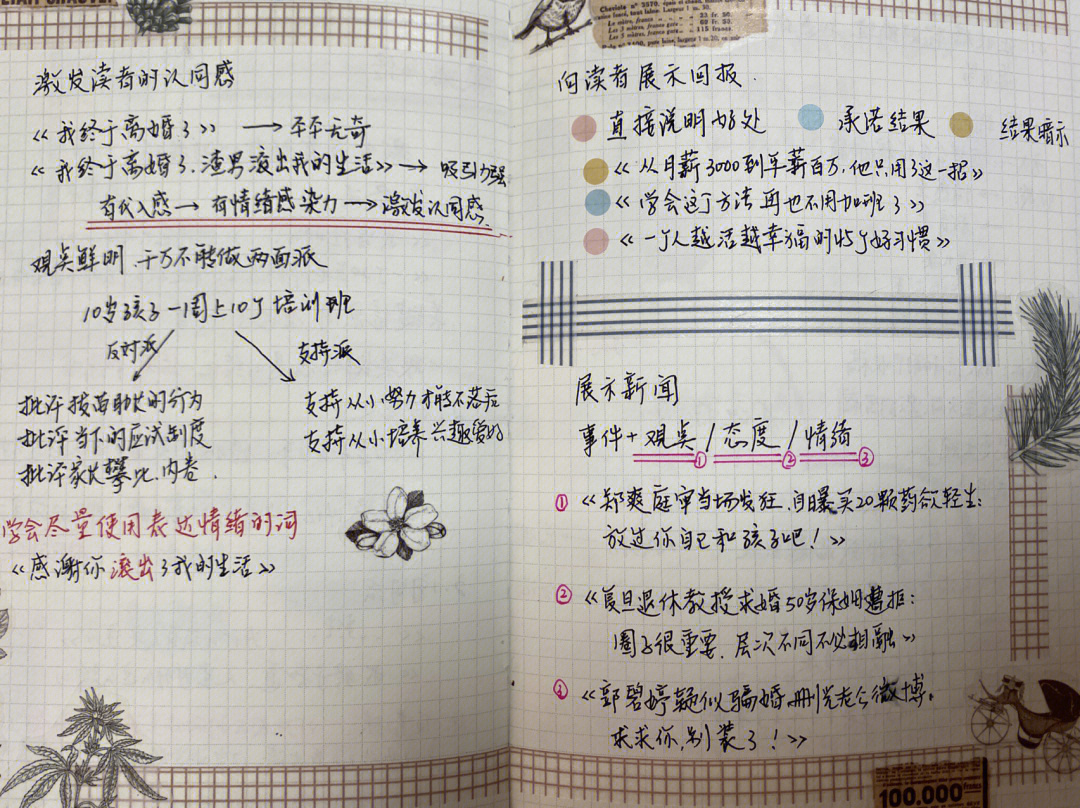 激发读者的认同感
《我终于离婚了》 → 平平无奇
《我终于离婚了,渣男滚出我的生活》→ 吸引力强
有代入感 → 有情绪感染力 → 激发认同感
观点鲜明,千万不能做两面派
10岁孩子一周上10个培训班
反对派 支持派
批评拔苗助长的行为
批评当下的应试制度
批评家长攀比,内卷.
支持从小努力才能不落后
支持从小培养兴趣爱好
学会尽量使用表达情绪的词
《感谢你滚出了我的生活》
向读者展示回报.
直接说明好处 承诺结果 结果暗示
《从月薪3000到年薪百万,他只用了这一招》
《学会这个方法再也不用加班了》
《一个人越活越幸福的45个好习惯》
展示新闻
事件+观点/态度/情绪
① ② ③
① 《郑爽庭审当场发狂,自曝买20颗药欲轻生:
放过你自己和孩子吧!》
② 《复旦退休教授求婚50岁保姆遭拒:
圈子很重要,层次不同不必相融》
③ 《郭碧婷疑似骗婚,删光老公微博,
求求你,别装了!》
Cheviote n° 3570
33 fr. 50.
69 fr. 50.
115 francs
100.000 francs